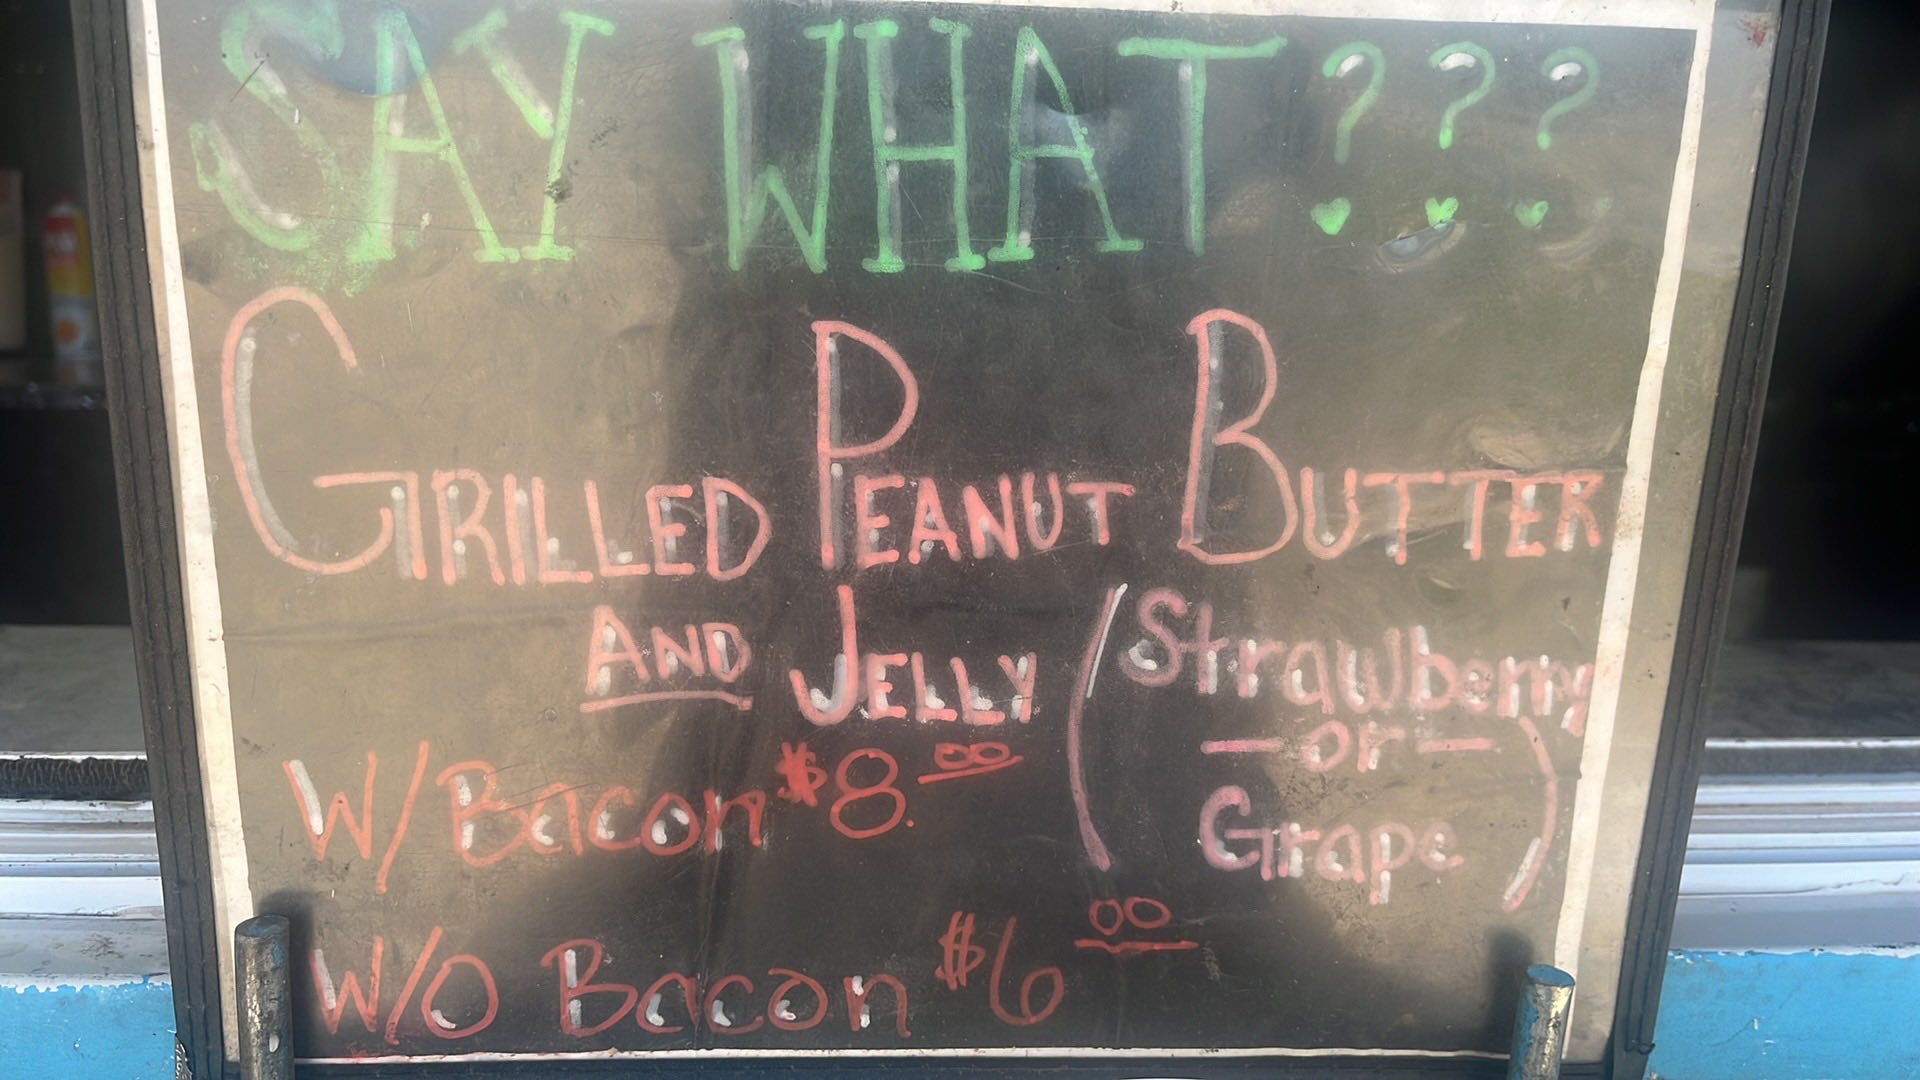 SAY WHAT???
GRILLED PEANUT BUTTER
AND JELLY (Strawberry
-or-
Grape)
W/ Bacon $8.00
W/O Bacon $6 00